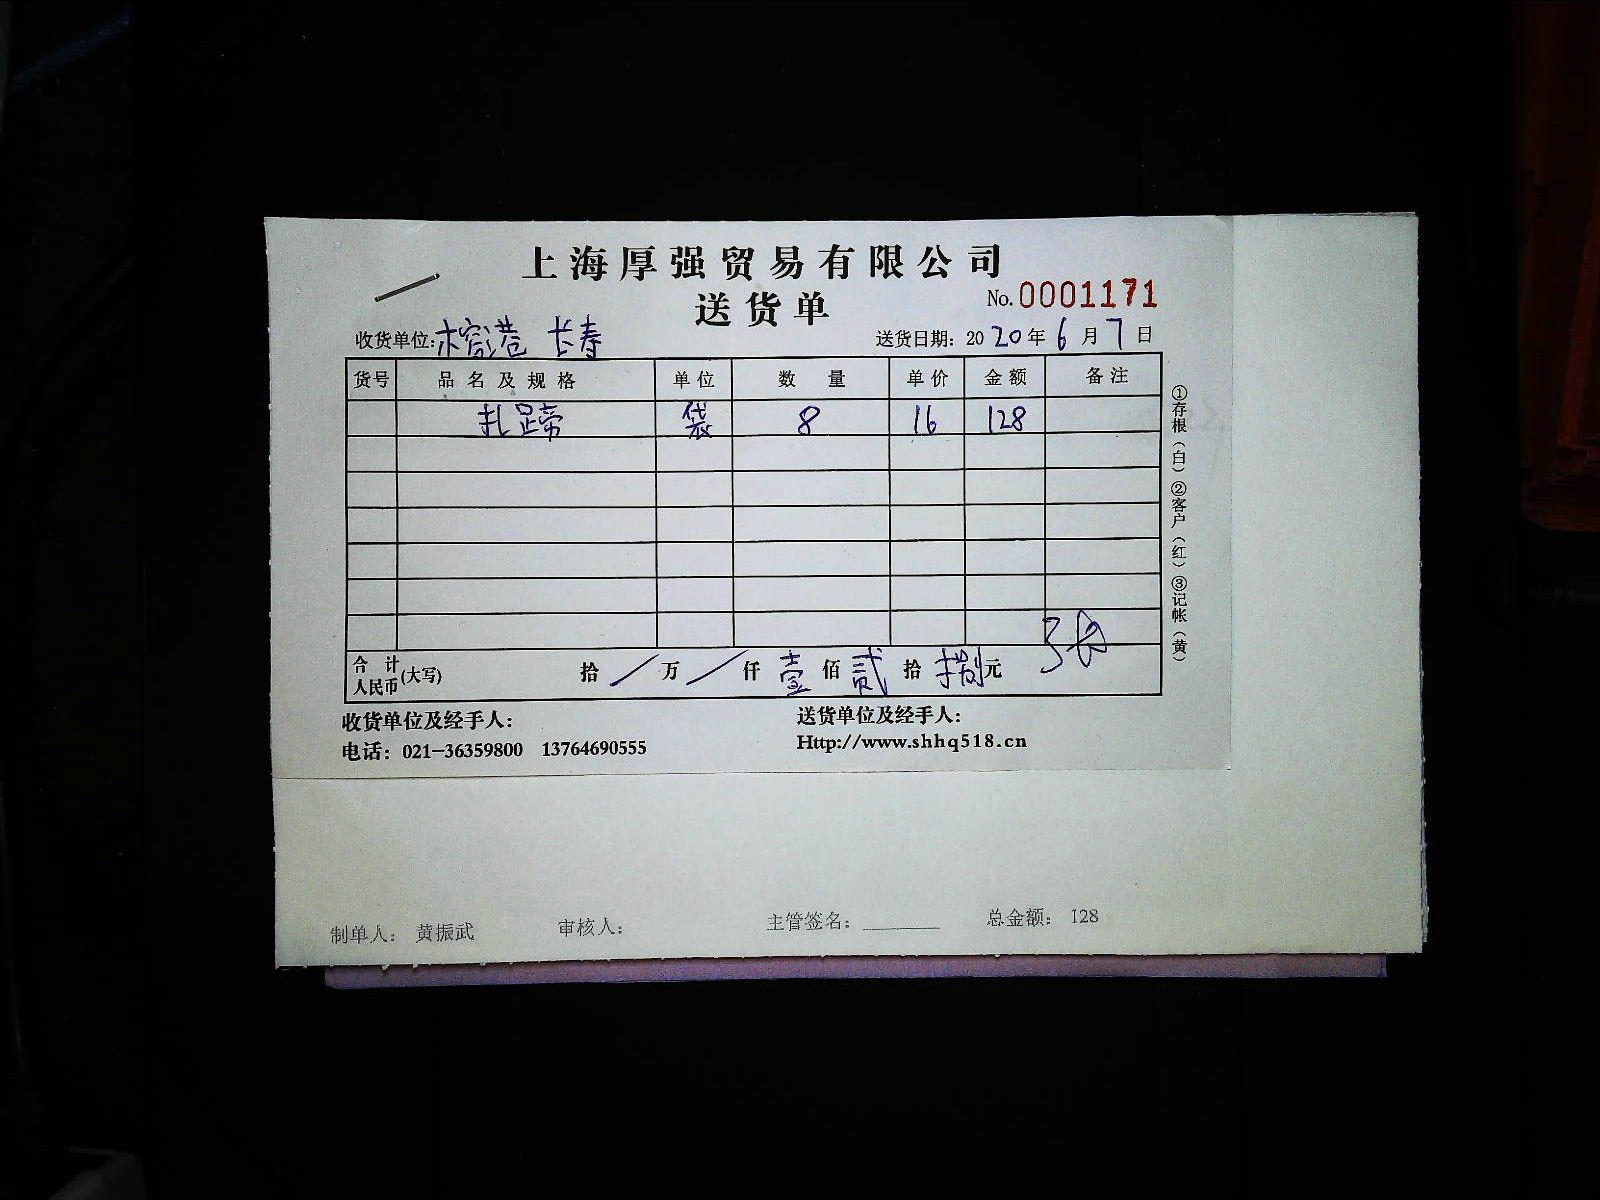 上海厚强贸易有限公司
送货单
No.0001171
收货单位:榕港 长寿 送货日期: 2020年6月7日
货号 品名及规格 单位 数量 单价 金额 备注
扎蹄 袋 8 16 128
合计人民币(大写) 拾/万/仟壹佰贰拾捌元
张
①存根(白)②客户(红)③记帐(黄)
收货单位及经手人: 送货单位及经手人:
电话: 021-36359800 13764690555 Http://www.shhq518.cn
制单人: 黄振武 审核人: 主管签名:________ 总金额: 128